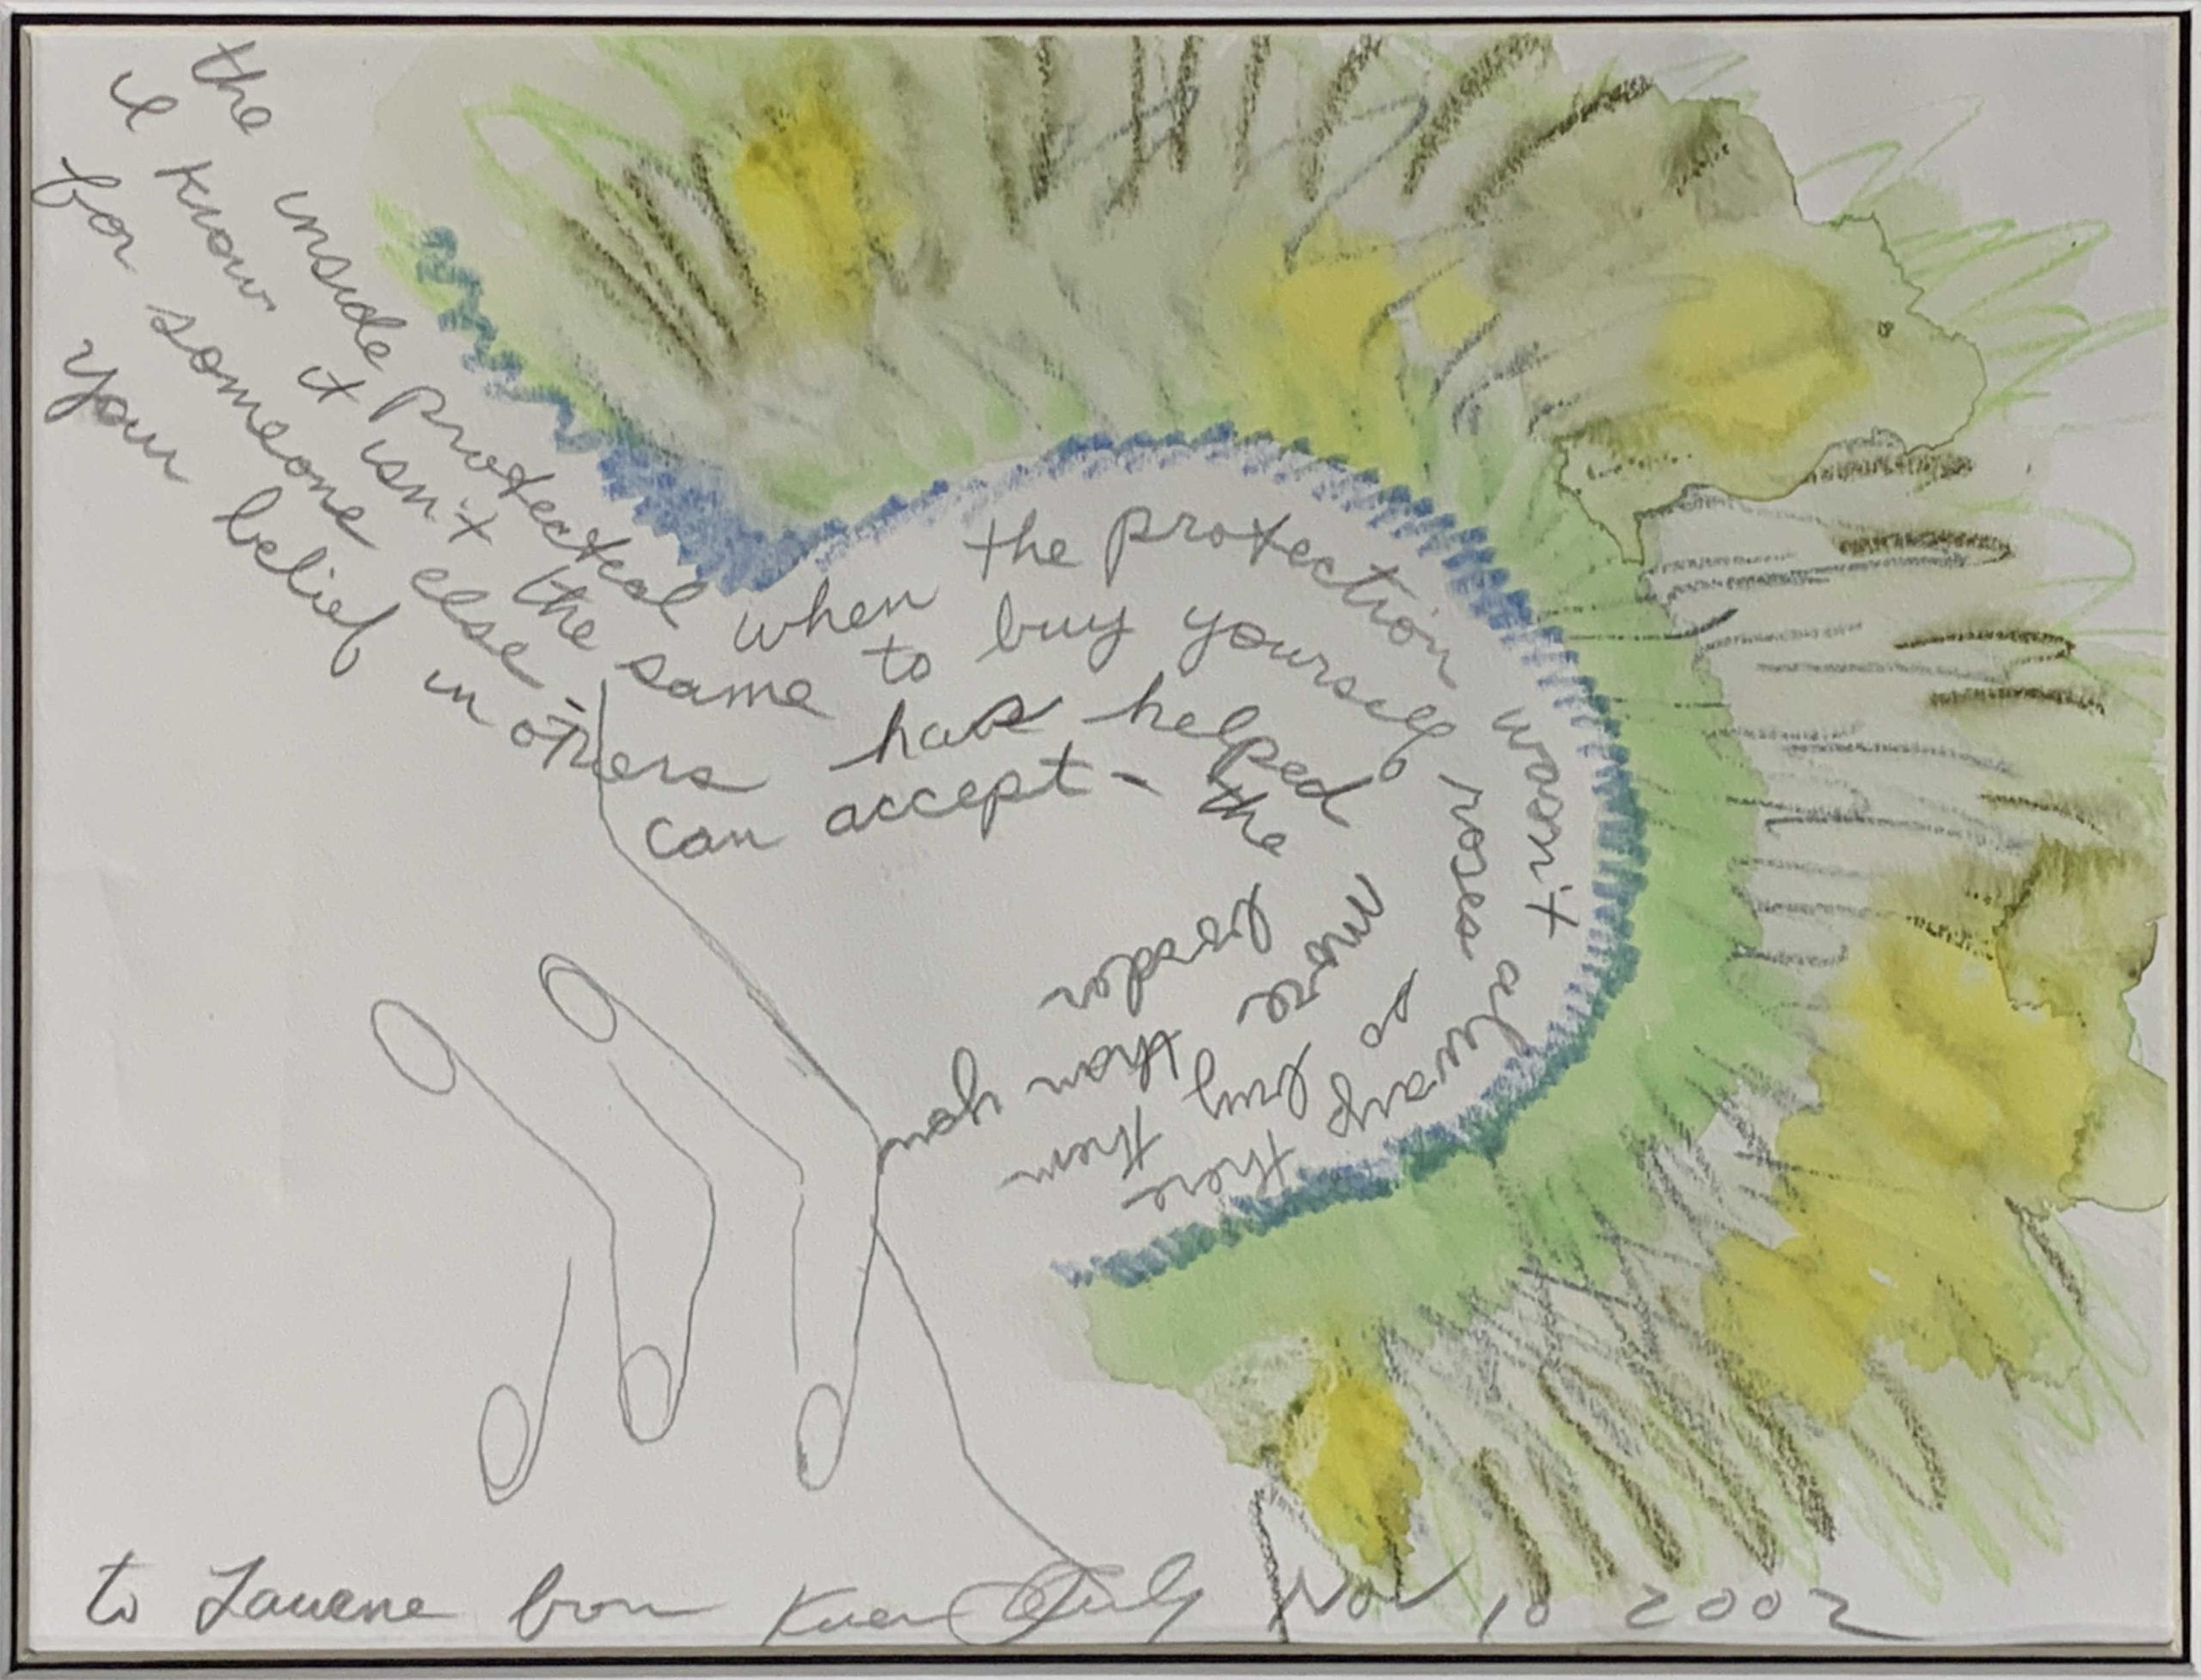 the inside protected when the protection wasn't always there
I know it isn't the same to buy yourself roses so buy them
for someone else - has helped more than you
your belief in others can accept - the
to Laurene from Karen Finley Nov 10 2002